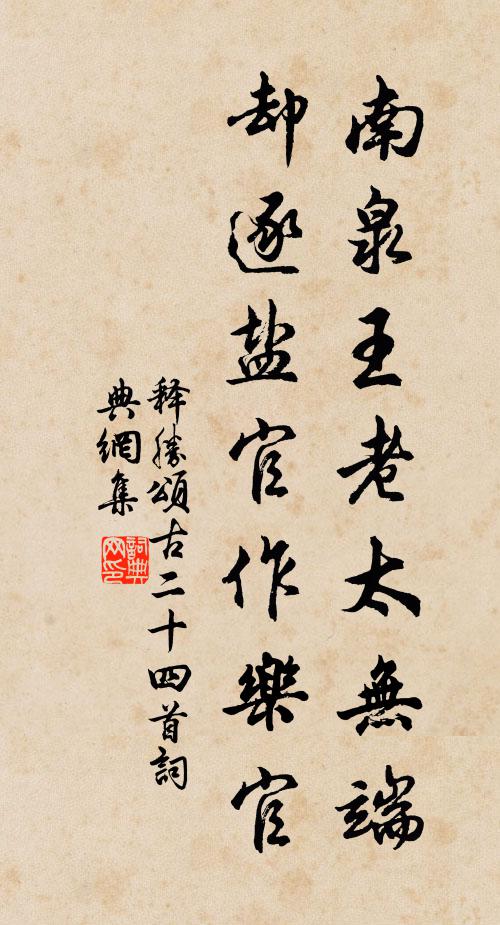 南泉王老太無端
却逐盐官作樂官
释勝頌古二十四首詞
典網集
詞典
网印